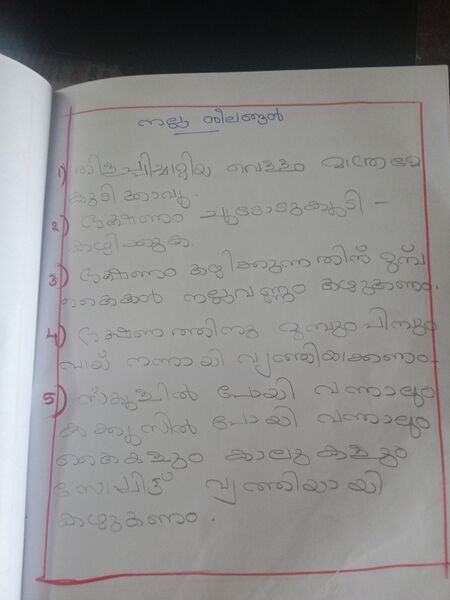 നല്ല ശീലങ്ങൾ
1) തിളപ്പിച്ചാറിയ വെള്ളം മാത്രമേ
കുടിക്കാവൂ.
2) ഭക്ഷണം ചൂടോടുകൂടി -
കഴിക്കുക.
3) ഭക്ഷണം കഴിക്കുന്നതിന് മുമ്പ്
കൈകൾ നല്ലവണ്ണം കഴുകണം.
4) ഭക്ഷണത്തിനു മുമ്പും പിമ്പും
വായ് നന്നായി വൃത്തിയാക്കണം.
5) സ്കൂളിൽ പോയി വന്നാലും
കക്കൂസിൽ പോയി വന്നാലും
കൈകളും കാലുകളും
സോപ്പിട്ട് വൃത്തിയായി
കഴുകണം.